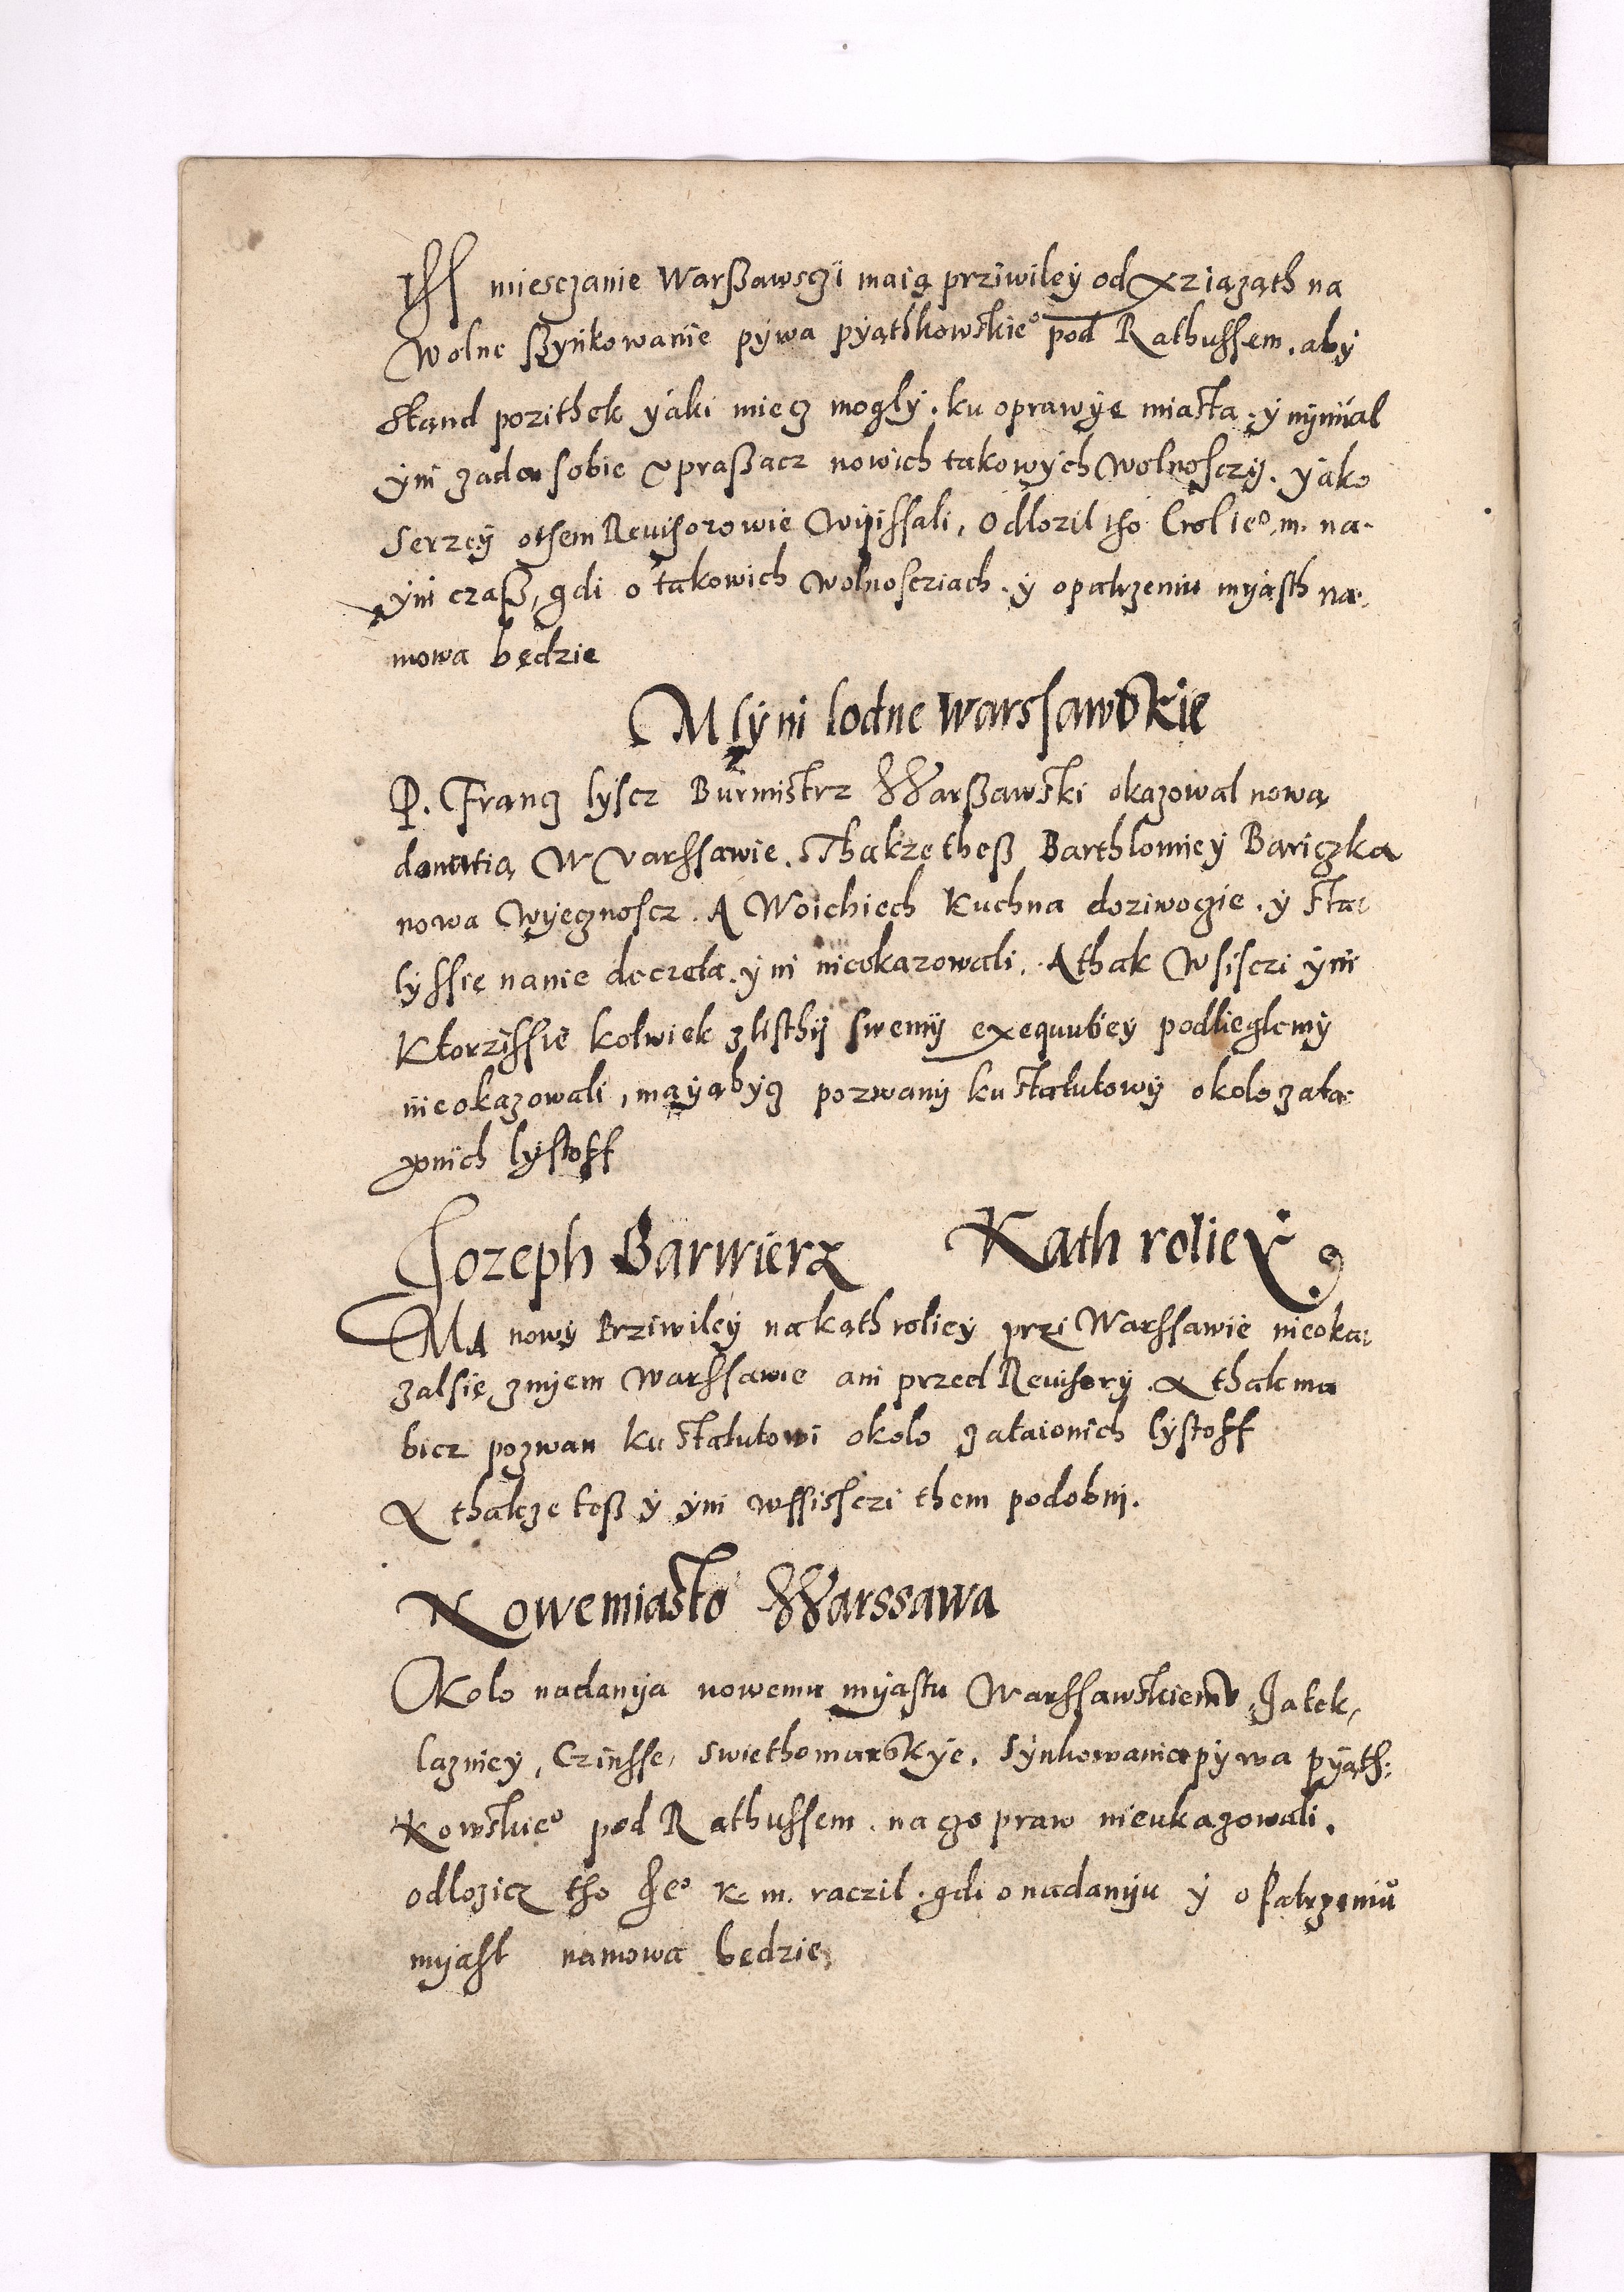 Iss miesczanie Warßawsczi maią prziwiley od xziązath na
wolne szynkowanie pywa pyąthkowskie° pod Rathussem. aby
stand pozithek yaki miecz mogly. ku oprawye miasta. y nymial
yni zaden sobie vpraßacz nowich takowych wolnosczy. yako
serzey othem Revisorowie wypissali, odlozil tho Crol ie° m. na
yni czaß, gdi o takowich wolnoscziach. y opatrzeniu myasth na:
mowa będzie
Mlyni lodne warssawskie
P. Francz lyscz Burmistrz Warßawski okazowal nową
donatią W Varssawie. Thakze theß Barthlomiey Bariczka
nowa wyecznoscz. A Woichiech Kuchna doziwoczie. y sta:
lyssie nanie decreta. yni nieokazowali. A thak wsisczi yni
Ktorzissie kolwiek zlisthy swemy exequutiey podlieglemy
nieokazowali, mayą bycz pozwany ku statutowy okolo zata:
yonich lystoff
Jozeph Barwierz Kath roliey
Ma nowy Prziwiley na kąth roliey przi Warssawie nieoka:
zalsie znyem Warssawie ani przed Revisory. A thak ma
bicz pozwan ku statutowi okolo zataionich lystoff
A thakze teß y yni wssisczi them podobni.
Nowemiasto Warssawa
Okolo nadanya nowemu myastu Warssawskiemu Jatek,
lazniey, Czinsse, swiethomarskye, synkowania pywa pyąth:
kowskie° pod Rathussem. na czo praw nieukazowali.
odlozicz tho Je° K. m. raczil. gdi o nadanyu y opatrzeniu
myast namowa będzie